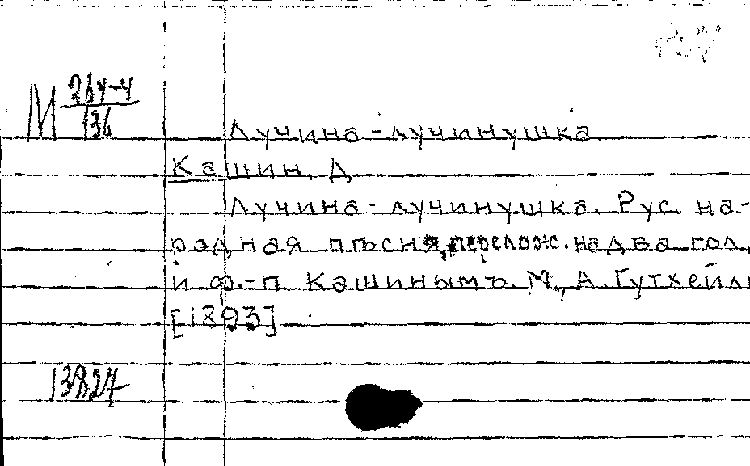 М 264-4/136
Лучина-лучинушка
Кашин, Д.
Лучина-лучинушка. Рус. на-
родная пѣсня, перелож. на два гол.
и ф.-п. Кашинымъ. М., А. Гутхейль
[1893]
13827